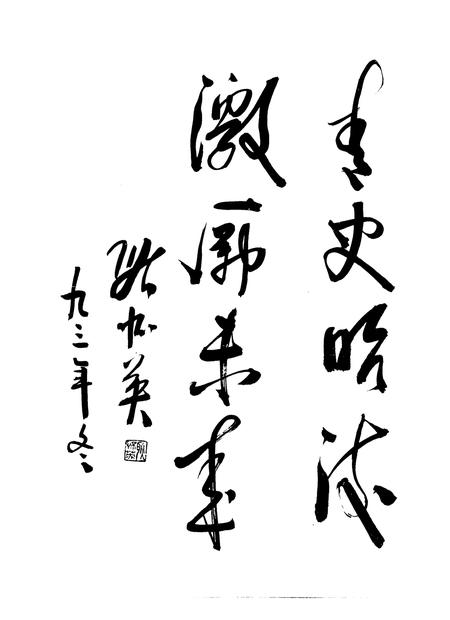 青史昭
激励未来
耿怀英
九三年冬